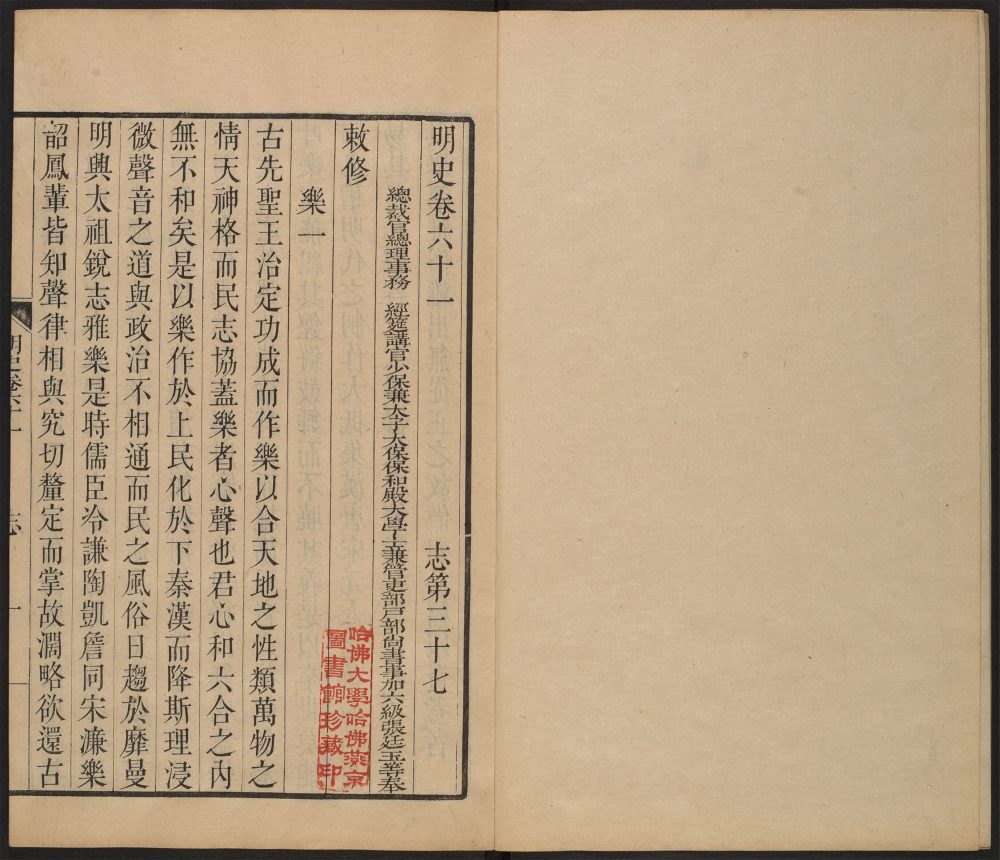 明史卷六十一 志第三十七
總裁官總理事務 經筵講官少保兼太子太保保和殿大學士兼管吏部戶部尚書事加六級張廷玉等奉
敕修
樂一
古先聖王治定功成而作樂以合天地之性類萬物之
情天神格而民志協蓋樂者心聲也君心和六合之內
無不和矣是以樂作於上民化於下秦漢而降斯理浸
微聲音之道與政治不相通而民之風俗日趨於靡曼
明興太祖銳志雅樂是時儒臣冷謙陶凱詹同宋濂樂
韶鳳輩皆知聲律相與究切釐定而掌故濶略欲還古
明史卷六十一 志 一
哈佛大學哈佛燕京
圖書館珍藏印